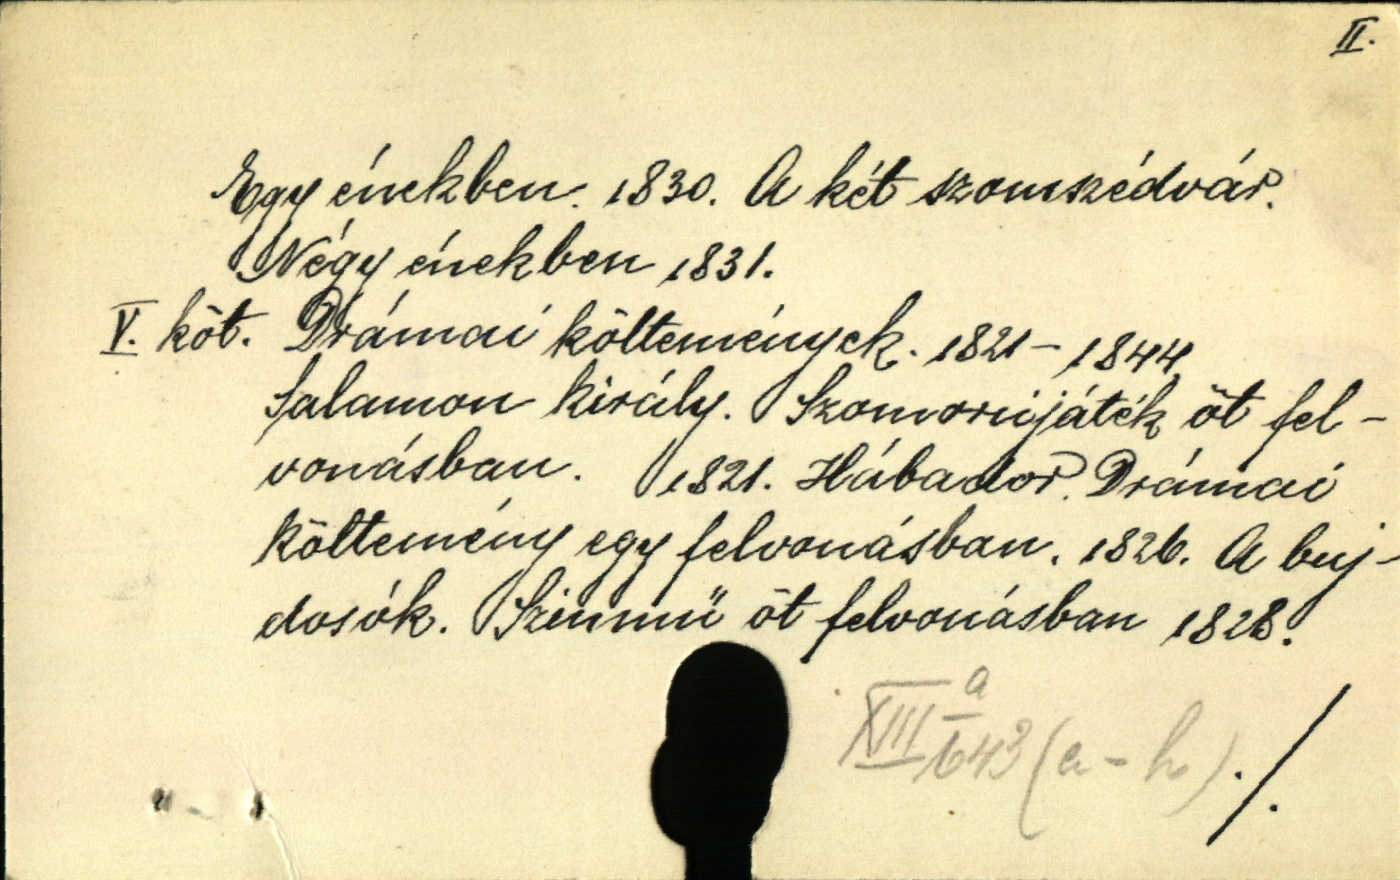 II.
Egy énekben. 1830. A két szomszédvár.
Négy énekben 1831.
V. köt. Drámai költemények. 1821-1844.
Salamon király. Szomorújáték öt fel-
vonásban. 1821. Hábador. Drámai
költemény egy felvonásban. 1826. A buj-
dosók. Szinmü öt felvonásban 1828.
a
XIII 643 (a-h) ./.